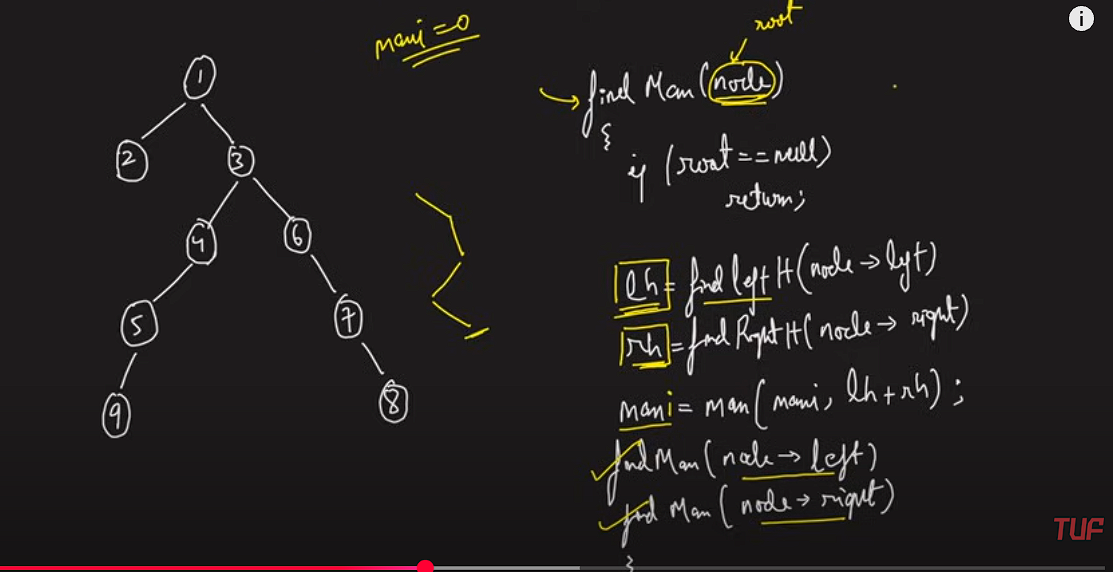 maxi = 0
root
find Max (node)
{
if (root == null)
return;
lh = find left H (node → left)
rh = find Right H (node → right)
maxi = max (maxi, lh + rh) ;
find Max (node → left)
find Max (node → right)
}
1
2 3
4 6
5 7
9 8
TUF
i